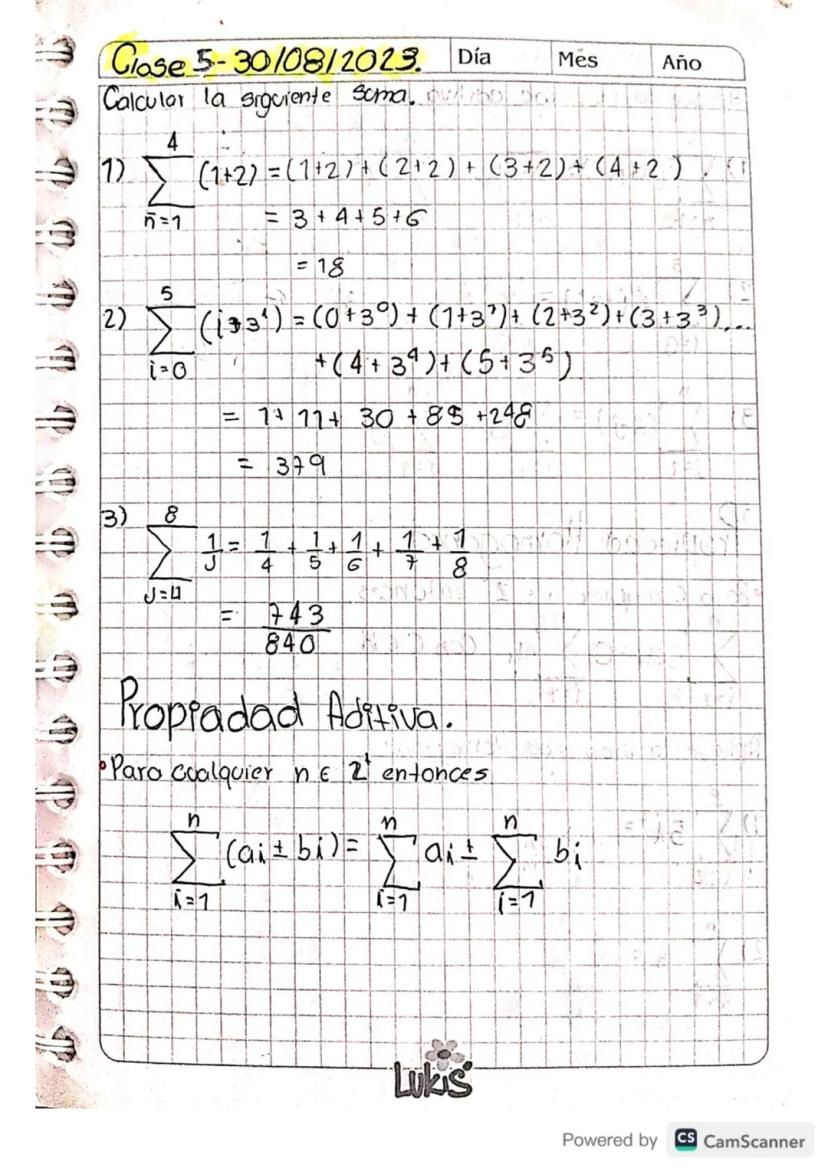 Clase 5-30/08/2023. Día Mes Año
Calcular la siguiente suma.
1) 4 ∑ n=1 (1+2) = (1+2) + (2+2) + (3+2) + (4+2)
= 3 + 4 + 5 + 6
= 18
2) 5 ∑ i=0 (i+3^i) = (0+3^0) + (1+3^1) + (2+3^2) + (3+3^3)...
+ (4+3^4) + (5+3^5)
= 1+ 11+ 30 + 85 +248
= 379
3) 8 ∑ J=4 1/J = 1/4 + 1/5 + 1/6 + 1/7 + 1/8
= 743/840
Propiadad Aditiva.
• Para cualquier n ∈ Z^+ entonces
n ∑ i=1 (ai ± bi) = n ∑ i=1 ai ± n ∑ i=1 bi
LUKIS
Powered by CS CamScanner